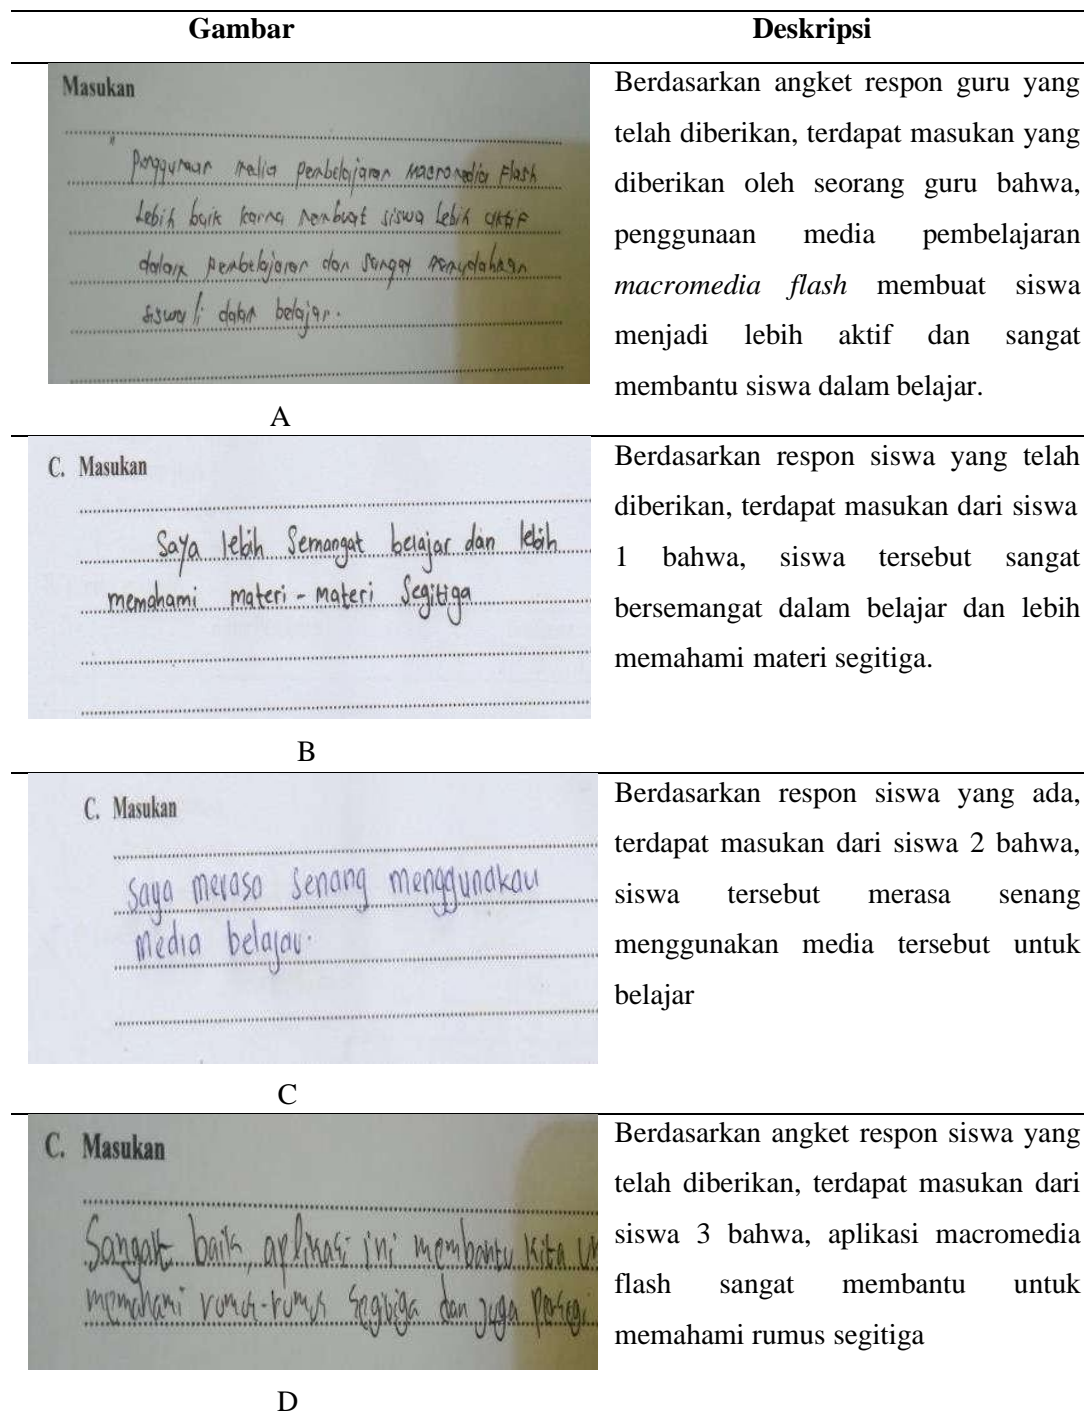 Gambar Deskripsi
Masukan
"
Penggunaan media pembelajaran Macromedia Flash
Lebih baik karna membuat siswa Lebih aktif
dalam pembelajaran dan sangat memudahkan
siswa dalam belajar.
A
Berdasarkan angket respon guru yang
telah diberikan, terdapat masukan yang
diberikan oleh seorang guru bahwa,
penggunaan media pembelajaran
macromedia flash membuat siswa
menjadi lebih aktif dan sangat
membantu siswa dalam belajar.
C. Masukan
Saya lebih Semangat belajar dan lebih
memahami materi - Materi Segitiga
B
Berdasarkan respon siswa yang telah
diberikan, terdapat masukan dari siswa
1 bahwa, siswa tersebut sangat
bersemangat dalam belajar dan lebih
memahami materi segitiga.
C. Masukan
Saya merasa Senang menggunakan
Media belajar.
C
Berdasarkan respon siswa yang ada,
terdapat masukan dari siswa 2 bahwa,
siswa tersebut merasa senang
menggunakan media tersebut untuk
belajar
C. Masukan
Sangat baik, aplikasi ini membantu Kita
memahami rumus-rumus Segitiga dan juga Persegi
D
Berdasarkan angket respon siswa yang
telah diberikan, terdapat masukan dari
siswa 3 bahwa, aplikasi macromedia
flash sangat membantu untuk
memahami rumus segitiga